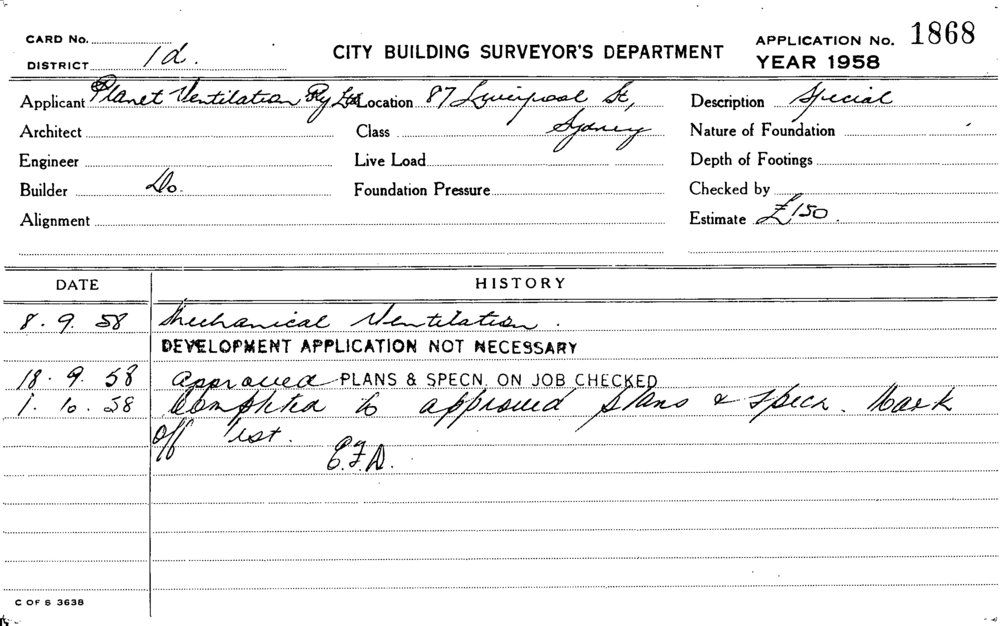 CARD No.
DISTRICT 1d.
CITY BUILDING SURVEYOR'S DEPARTMENT
APPLICATION No. 1868
YEAR 1958
Applicant Planet Ventilation Pty Ltd Location 87 Liverpool St, Description Special
Architect Class Sydney Nature of Foundation
Engineer Live Load Depth of Footings
Builder Do. Foundation Pressure Checked by
Alignment Estimate £150.
DATE HISTORY
8. 9. 58 Mechanical Ventilation.
DEVELOPMENT APPLICATION NOT NECESSARY
18. 9. 58 Approved PLANS & SPECN. ON JOB CHECKED
1. 10. 58 Completed to approved plans & specn. Mark
off list.
C OF S 3638